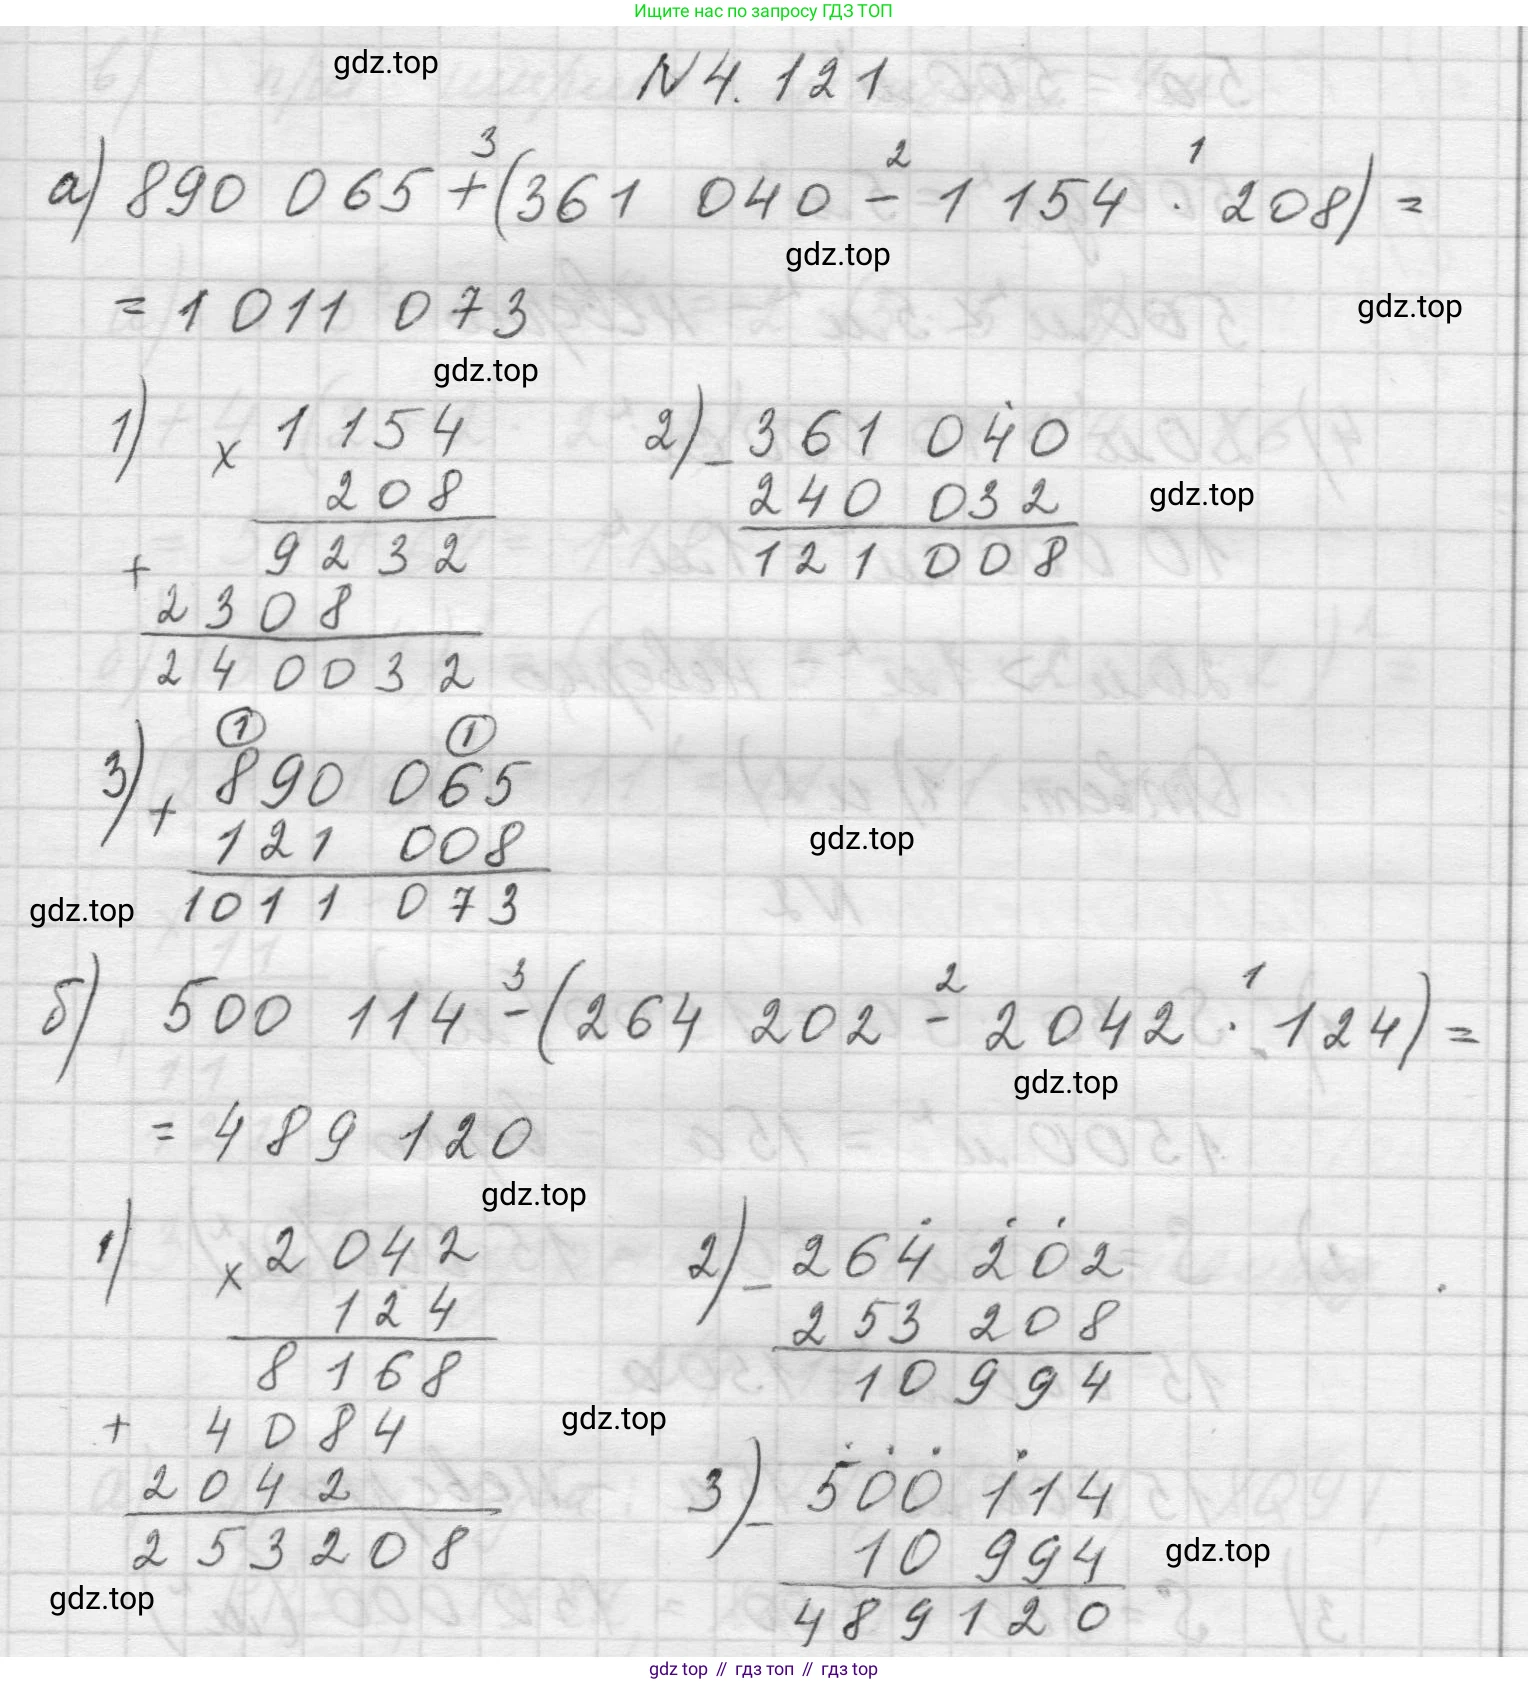 Ищите нас по запросу ГДЗ ТОП
gdz.top
N 4. 121
3 2 1
а) 890 065 + (361 040 - 1 154 · 208) =
gdz.top
= 1 011 073
gdz.top
gdz.top
1) × 1 154
208
9232
+
2308
240032
2) - 361 040
240 032
121 008
gdz.top
1 1
3) + 890 065
121 008
1011 073
gdz.top
gdz.top
3 2 1
б) 500 114 - (264 202 - 2042 · 124) =
gdz.top
= 489 120
gdz.top
1) × 2042
124
8168
+ 4084
2042
253208
2) - 264 202
253 208
10 994
gdz.top
3) - 500 114
10 994
489120
gdz.top
gdz.top
gdz top // гдз топ // гдз top